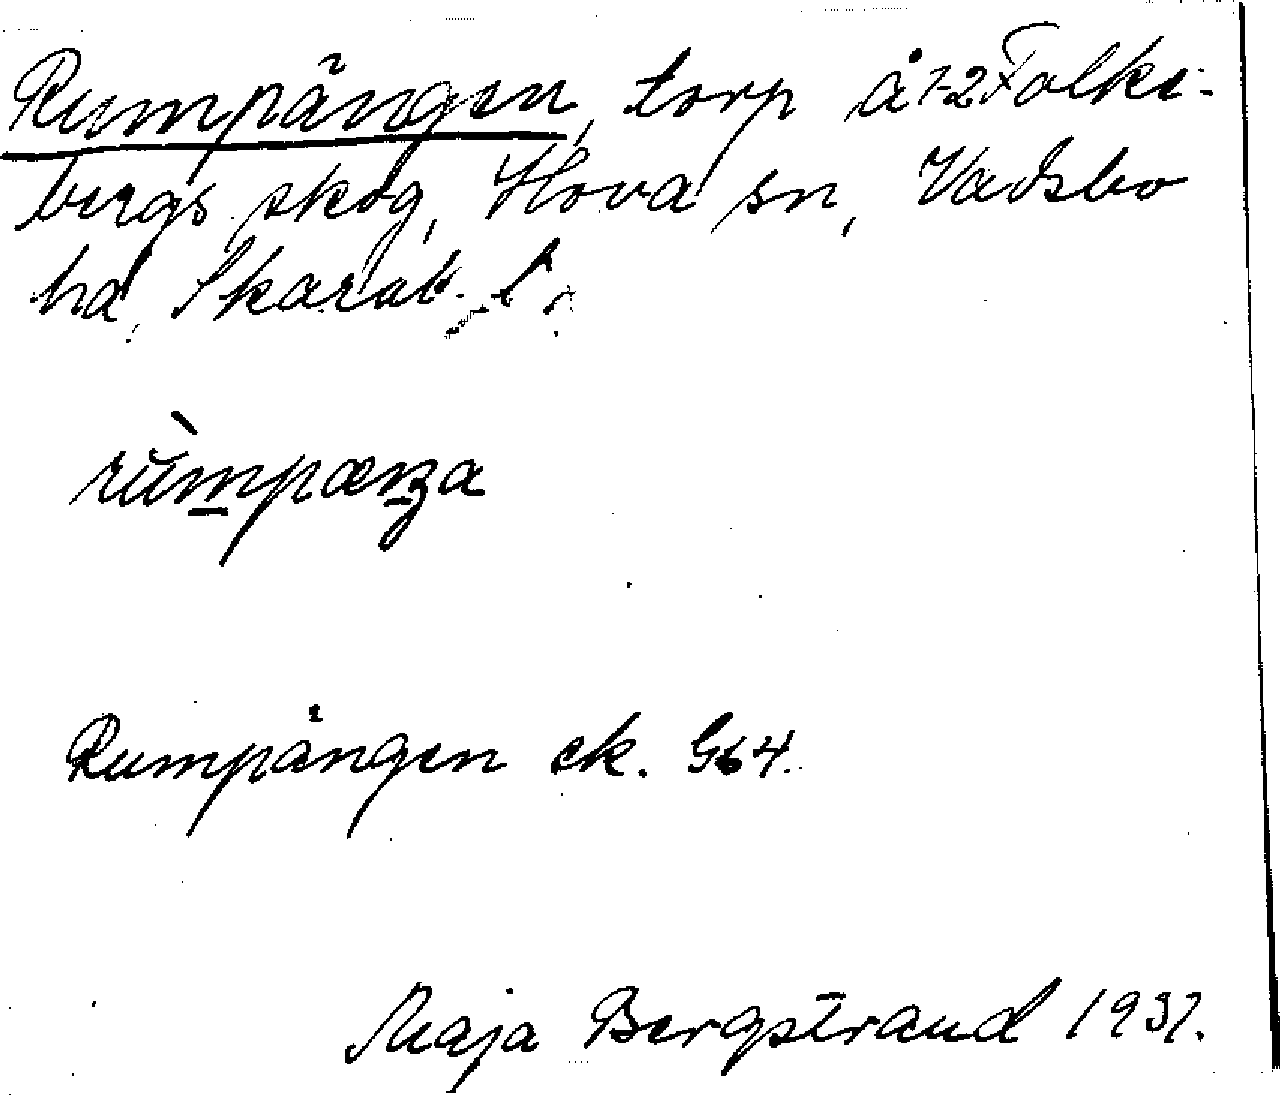 Rumpängen, torp å 1-2 Folke-
bergs skog, Hova sn, Vadsbo
hd, Skarab. l.
rùmpænȝa
Rumpängen ek. G64.
Maja Bergstrand 1937.